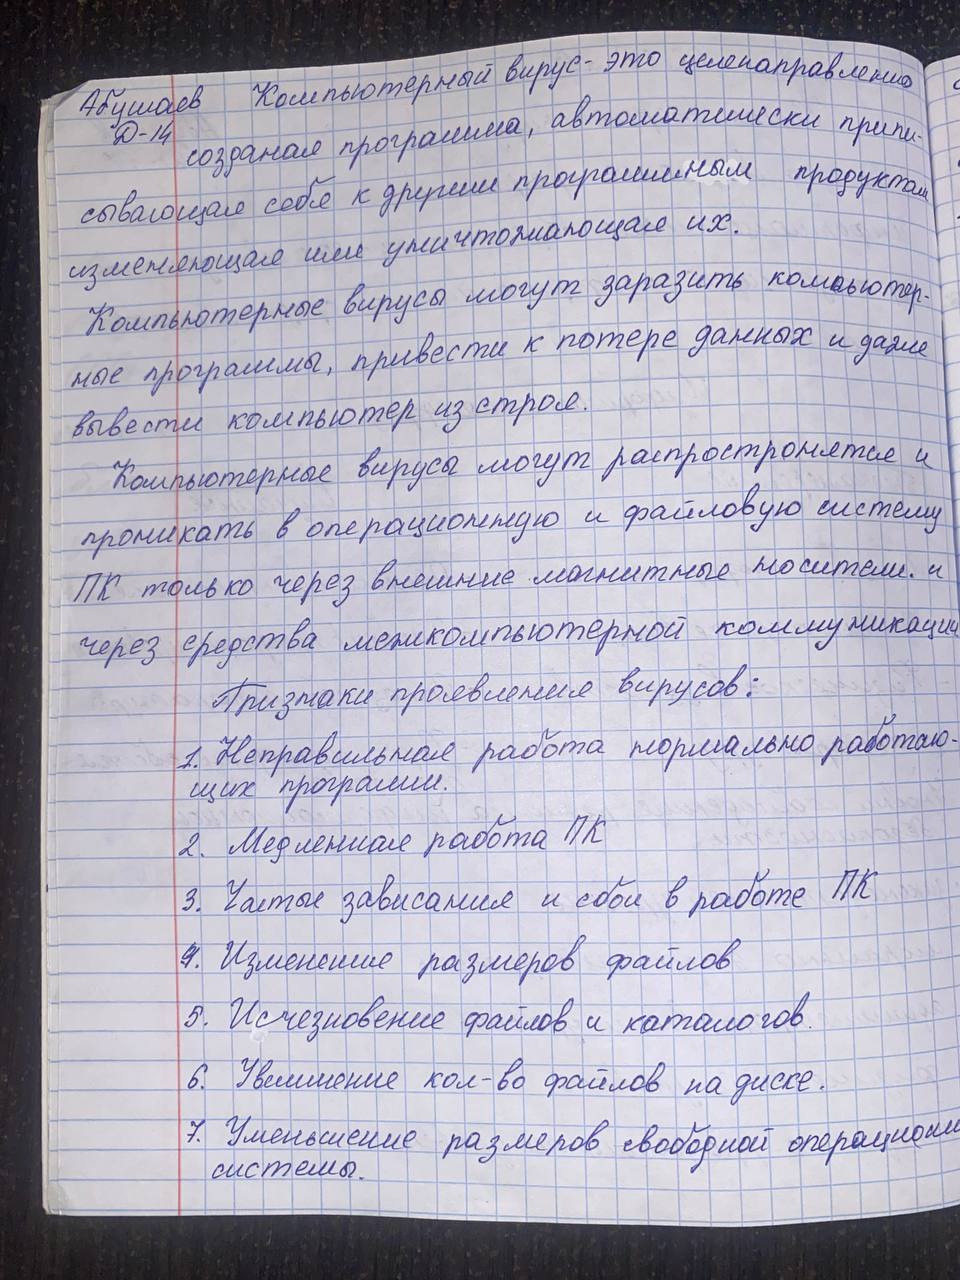 Абушаев Компьютерный вирус- это целенаправленно
Д-14 созданая программа, автоматически припи-
сывающая себя к другим программным продуктам
изменяющая или уничтожающая их.
Компьютерные вирусы могут заразить компьютер-
ные программы, привести к потере данных и даже
вывести компьютер из строя.
Компьютерные вирусы могут распростронятся и
проникать в операционную и файловую систему
ПК только через внешние магнитные носители. и
через средства межкомпьютерной коммуникации
Признаки проявления вирусов:
1. Неправильная работа нормально работаю-
щих программ.
2. Медленная работа ПК
3. Частые зависания и сбои в работе ПК
4. Изменение размеров файлов
5. Исчезновение файлов и каталогов.
6. Увеличение кол-во файлов на диске.
7. Уменьшение размеров свободной операционн
системы.